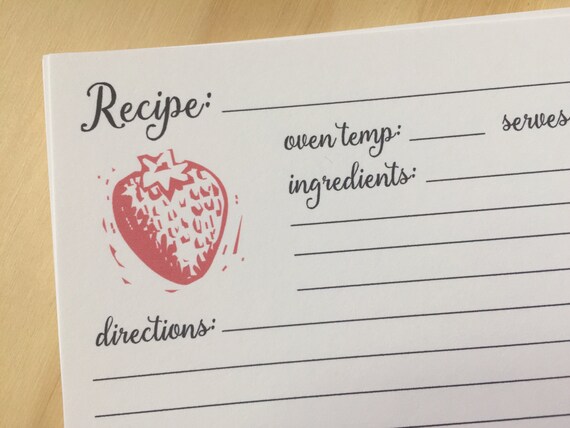 Recipe:
oven temp: serves
ingredients:
directions: